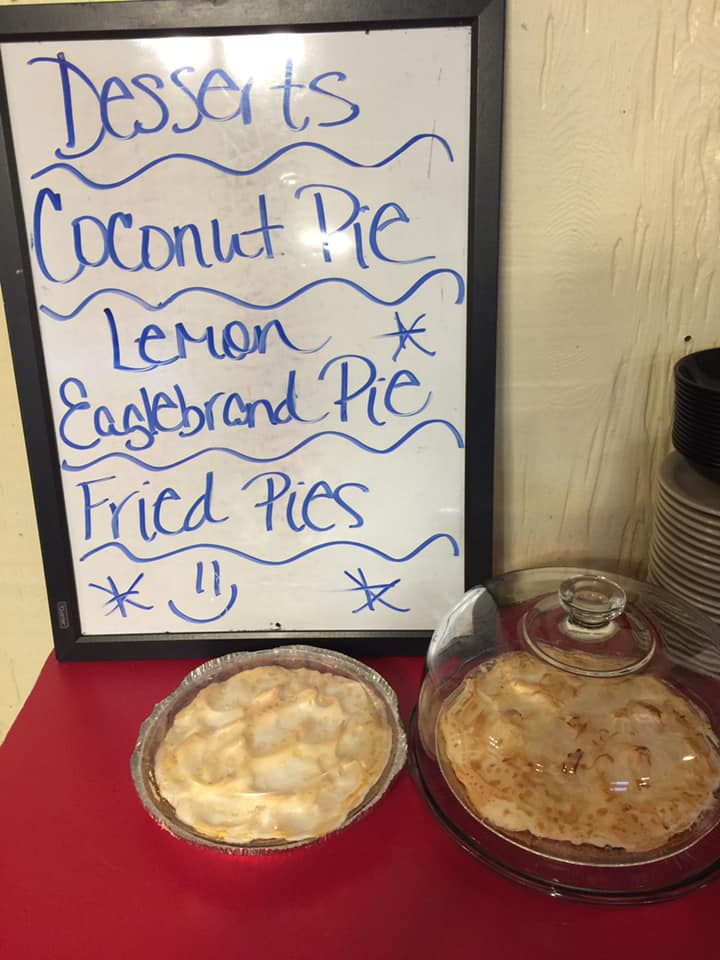 Desserts
Coconut Pie
Lemon
Eaglebrand Pie
Fried Pies